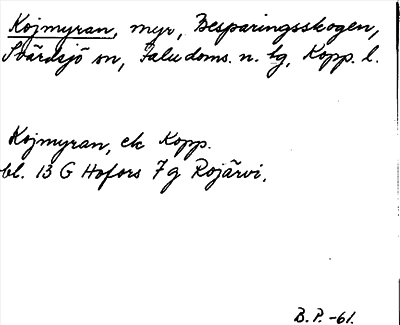 Kojmyran, myr, Besparingsskogen,
Svärdsjö sn, Falu doms. n. tg, Kopp. l.
Kojmyran, ek Kopp.
bl. 13 G Hofors 7 g Rojärvi.
B.P. -61.